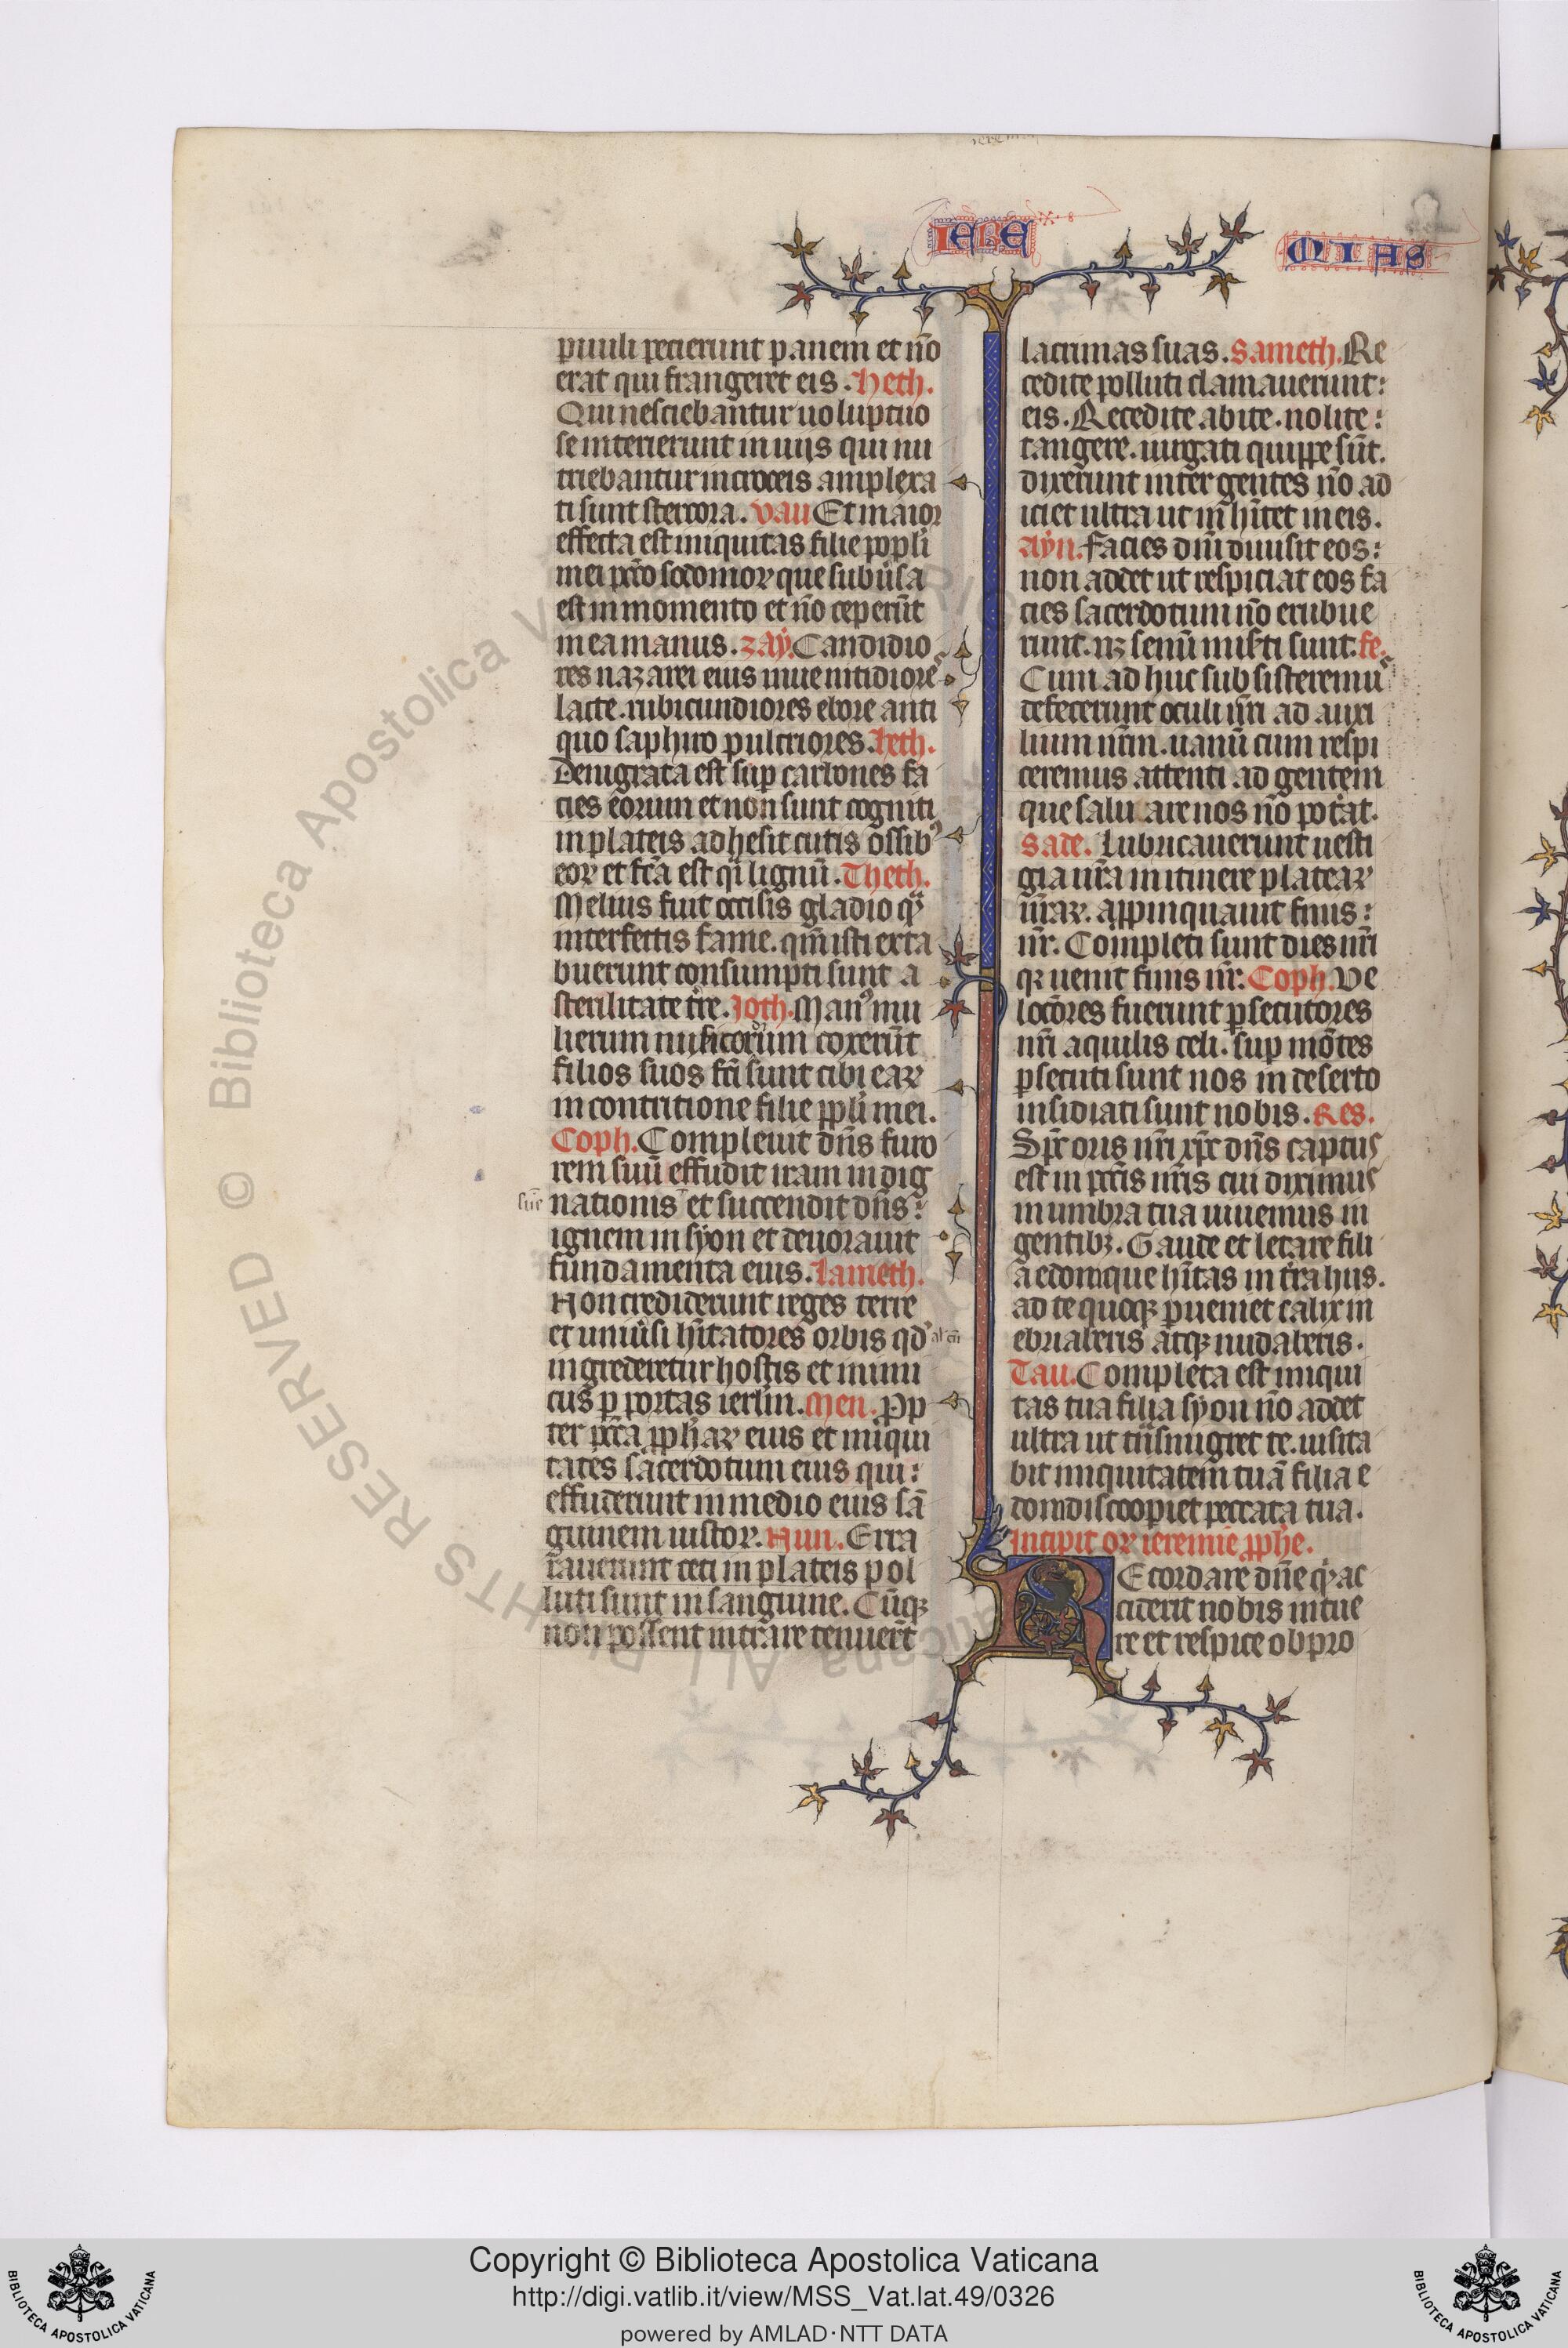 IERE MIAS
puuli petierunt panem et nõ
erat qui frangeret eis. Heth.
Qui uescebantur uoluptuo
se interierunt in uijs qui nu
triebantur in croceis amplexa
ti sunt stercora. Vau Et maior
effecta est iniquitas filie popli
mei pccõ sodomoꝝ que subũsa
est in momento et nõ ceperũt
in ea manus. Zaÿ. Candidio
res nazarei eius niue nitidiores
lacte. rubicundiores ebore anti
quo saphiro pulcriores. Heth.
Denigrata est sup carbones fa
cies eorum et non sunt cogniti
in plateis adhesit cutis ossibꝰ
eoꝝ et fcã est qͣi lignũ. Theth.
Melius fuit occisis gladio qͣ
interfectis fame. qm̃ isti exta
buerunt consumpti sunt a
sterilitate tr̃e. Ioth. Manꝰ mu
lierum mīcordium coxerũt
filios suos fcĩ sunt cibi eaꝝ
in contritione filie ppli mei.
Coph. Compleuit dñs furo
rem suũ effudit iram indig
nationis et succendit dñs:
sue
ignem in syon et deuorauit
fundamenta eius. Lameth.
Non crediderunt reges terre
et uniũsi hĩtatores orbis qd
ingrederetur hostis et inimi
cus ꝑ portas ierlm̃. Men. ꝓp
ter pccã ꝓphaꝝ eius et iniqui
tates sacerdotum eius qui:
effuderunt in medio eius sã
guinem iustoꝝ. Nun. Erra
rauerunt ceci in plateis pol
luti sunt in sanguine. Cũqꝫ
non possent intrare tenuerũt
lacrimas suas. Sameth. Re
cedite polluti clamauerunt:
eis. Recedite abite. nolite:
tangere. iurgati quippe sũt.
dixerunt inter gentes nõ ad
iciet ultra ut hĩtet in eis.
Ayn. Facies dñi diuisit eos:
non addet ut respiciat eos fa
cies sacerdotum nõ erubue
runt. nꝫ senũ miserti sunt. Fe.
Cum adhuc subsisteremus
defecerunt oculi nr̃i ad auxi
lium nrm̃. uanũ cum respi
ceremus attenti ad gentem
que saluare nos nõ potat.
Sade. Lubricauerunt uesti
gia nr̃a in itinere plateaꝝ
nr̃aꝝ. appinquauit finis:
nr̃. Completi sunt dies nr̃i
qꝛ uenit finis nr̃. Coph. Ve
lociores fuerunt ꝑsecutores
nr̃i aquilis celi. sup mõtes
ꝑsecuti sunt nos in deserto
insidiati sunt nobis. Res.
Sp̃c oris nr̃i xp̃c dñs captus
est in pccĩs nr̃is cui diximus
in umbra tua uiuemus in
gentibꝫ. Gaude et letare fili
a edom que hĩtas in tr̃a hus.
ad te quoqꝫ ꝑueniet calix in
ebriaberis atqꝫ nudaberis.
Tau. Completa est iniqui
tas tua filia syon nõ addet
ultra ut tñsmigret te. uisita
bit iniquitatem tuã filia e
dom discooꝑiet peccata tua.
Incipit oꝛ ieremie ꝓphe.
REcordare dñe qͥd ac
ciderit nobis intue
re et respice obpro
Copyright © Biblioteca Apostolica Vaticana
http://digi.vatlib.it/view/MSS_Vat.lat.49/0326
powered by AMLAD·NTT DATA
BIBLIOTECA APOSTOLICA VATICANA
BIBLIOTECA APOSTOLICA VATICANA